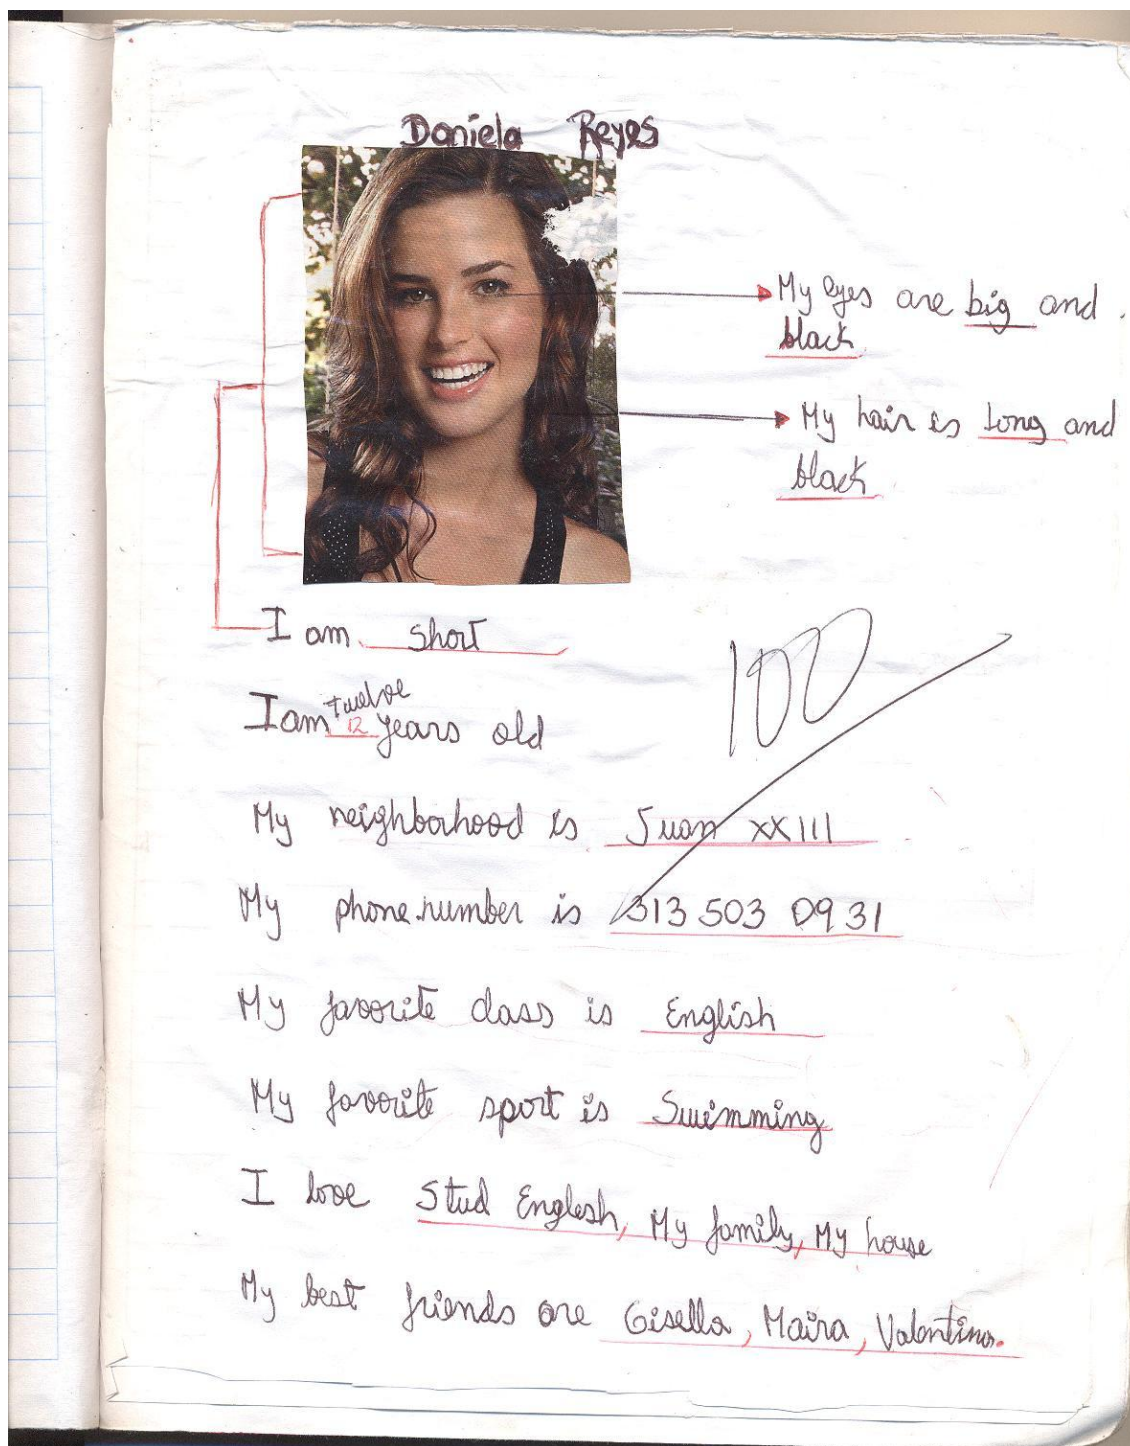 Daniela Reyes
My eyes are big and
black
My hair is long and
black
I am short
100
twelve
I am 12 years old
My neighborhood is Juan XXIII
My phone number is 313 503 0931
My favorite class is English
My favorite sport is Swimming
I love Stud English, My family, My house
My best friends are Gisella, Maira, Valentina.